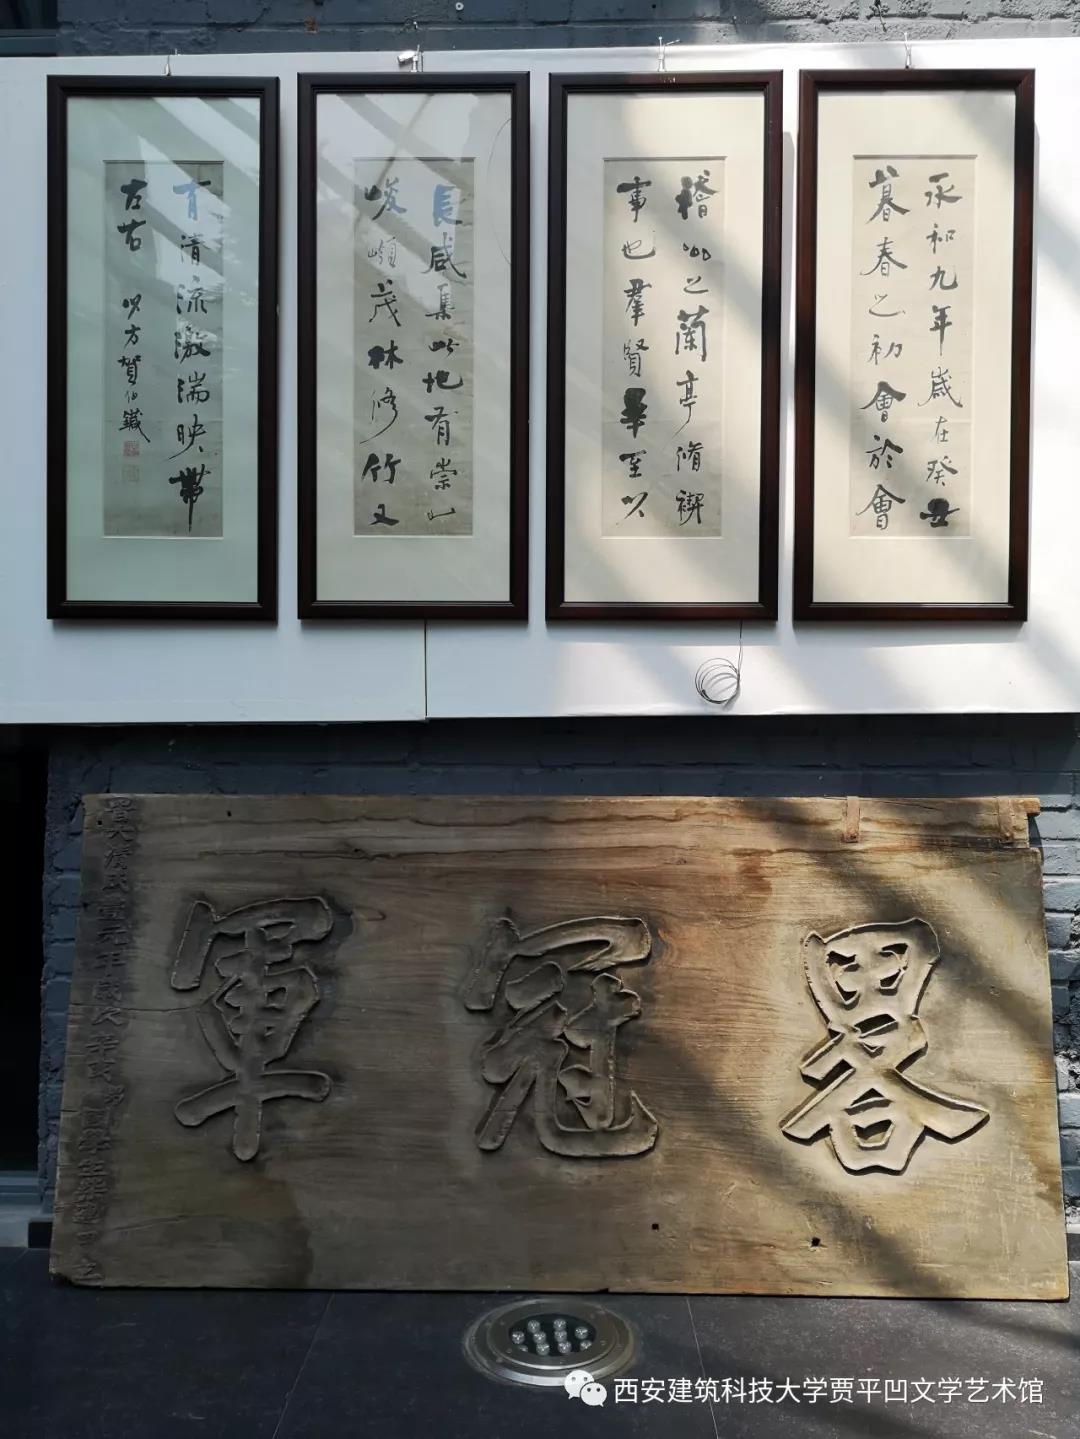 永和九年歲在癸丑
暮春之初會於會
稽山之蘭亭脩禊
事也羣賢畢至少
長咸集此地有崇山
峻嶺茂林修竹又
有清流激湍映帶
左右 以方賀伯鍼
畧冠軍
西安建筑科技大学贾平凹文学艺术馆